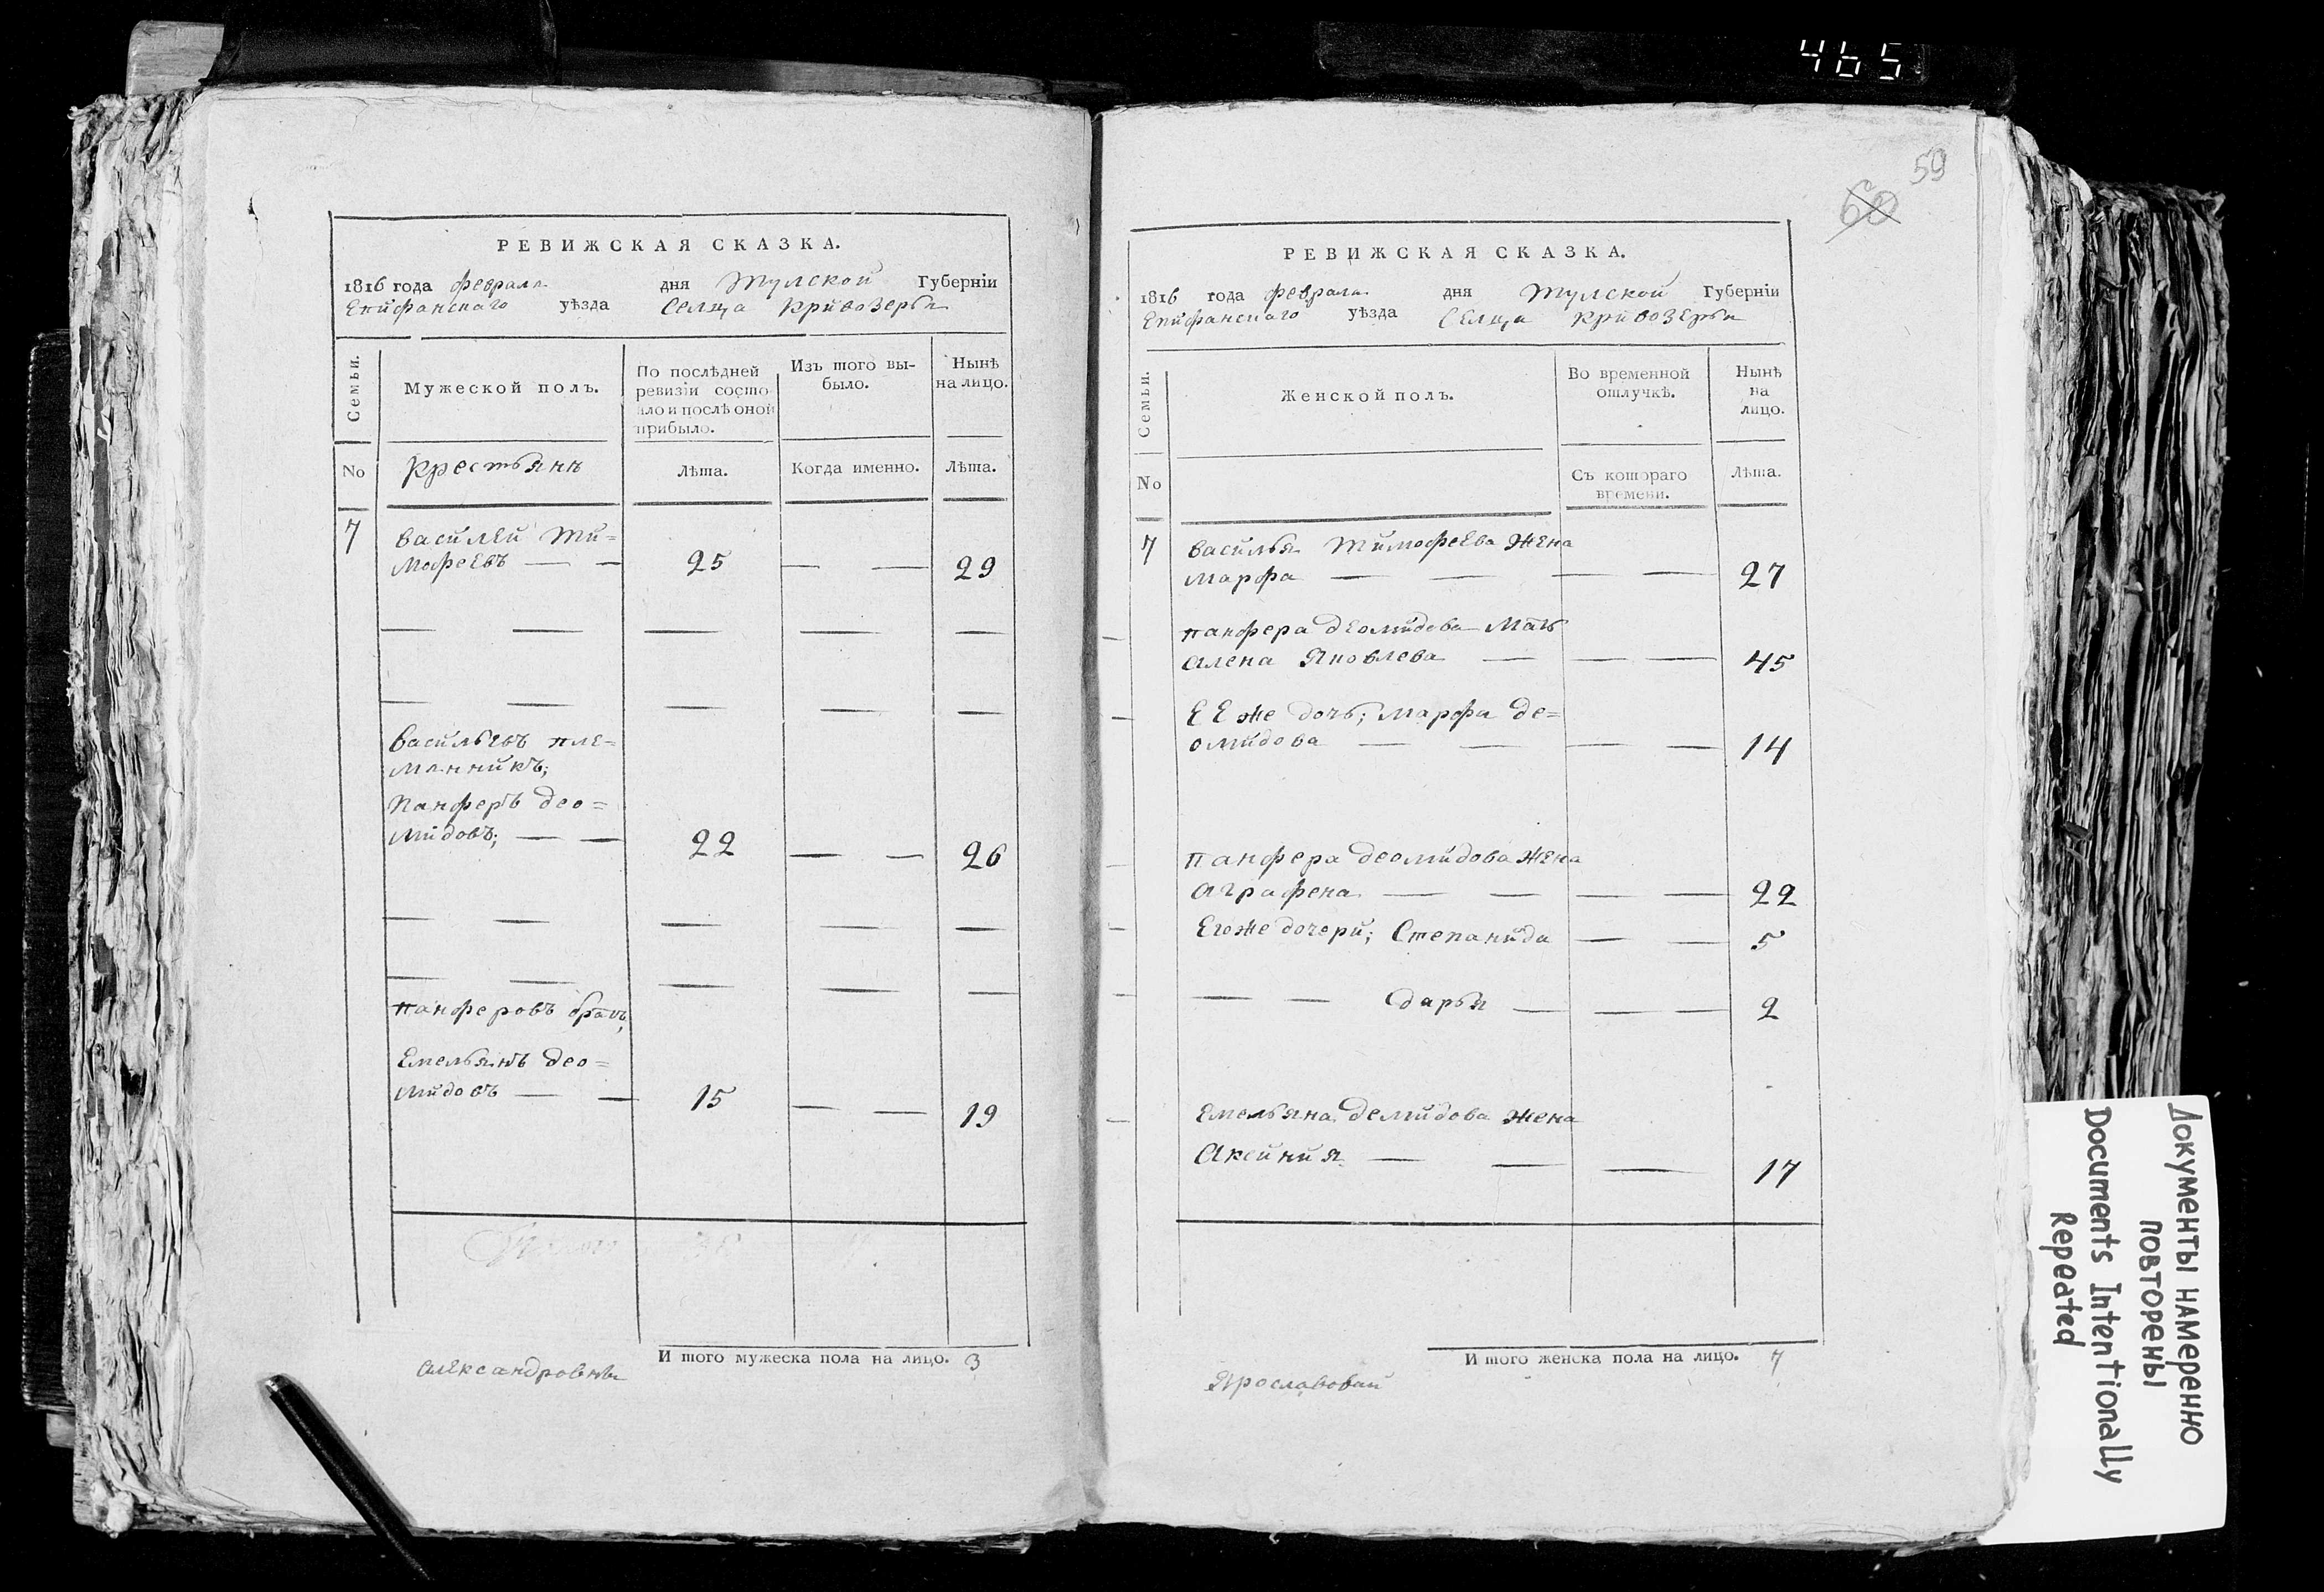 465
РЕВИЖСКАЯ СКАЗКА.
1816 года февраля дня Тулской Губернїи
Епифанскаго уѣзда Селца Кривозерья
Семьи.
Мужеской полъ.
По послѣдней
ревизїи состо-
яло и послѣ оной
прибыло.
Изъ того вы-
было.
Нынѣ
на лицо.
No
Крестьянѣ
Лѣта.
Когда именно.
Лѣта.
7
Василей Ти=
мофеевъ — — 25 — — 29
Васильевъ пле=
мянникъ;
Панферъ део=
мидовъ; — — 22 — — 26
панферовъ братъ,
Емельянъ део=
мидовъ — — 15 — — 19
И того мужеска пола на лицо. 3
Александровны
59
60
РЕВИЖСКАЯ СКАЗКА.
1816 года февраля дня Тулской Губернїи
Епифанскаго уѣзда Селца Кривозерья
Семьи.
Женской полъ.
Во временной
отлучкѣ.
Нынѣ
на
лицо.
No
Съ котораго
времени.
Лѣта.
7
Василья Тимофеева жена
марфа — — — — 27
панфера деомидова мать
алена Яковлева — — — 45
ЕЕ же дочь; марфа де=
омидова — — — — 14
панфера деомидова жена
аграфена — — — — 22
Егоже дочери; Степанида — — 5
— — дарья — — — 2
Емельяна демидова жена
Аксиния — — — 17
И того женска пола на лицо. 7
Ярославовай
Документы намеренно
повторены
Documents Intentionally
Repeated